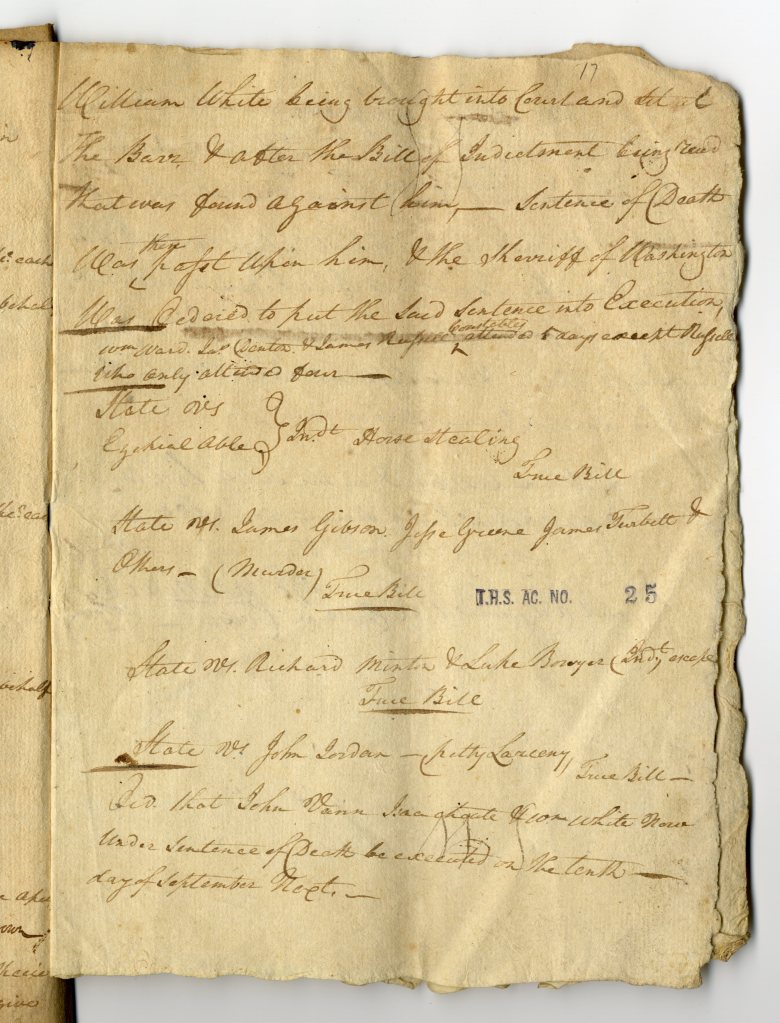 17
William White being brought into Court and Set at
the Barr & after the Bill of Indictment being read
that was found against him, — Sentence of Death
Was then past upon him, & the Sherriff of Washington
Was Ordered to put the Said Sentence into Execution,
Wm Ward. Jas. Denton & James Russell Constables attended 5 days except Russell
Who only attended four —
State vs
Ezekial Able } Indt Horse Stealing
True Bill
State vs. James Gibson. Jesse Greene James Turbett &
Others — (Murder)
True Bill
T.H.S. AC. NO. 25
State vs. Richard Minton & Luke Bowyer (Indt) escape
True Bill
State vs John Jordan — petty Larceny,
True Bill —
Ord. that John Vann & Wm White Now
Under Sentence of Death be executed on the tenth —
day of September Next. —
each
behalf